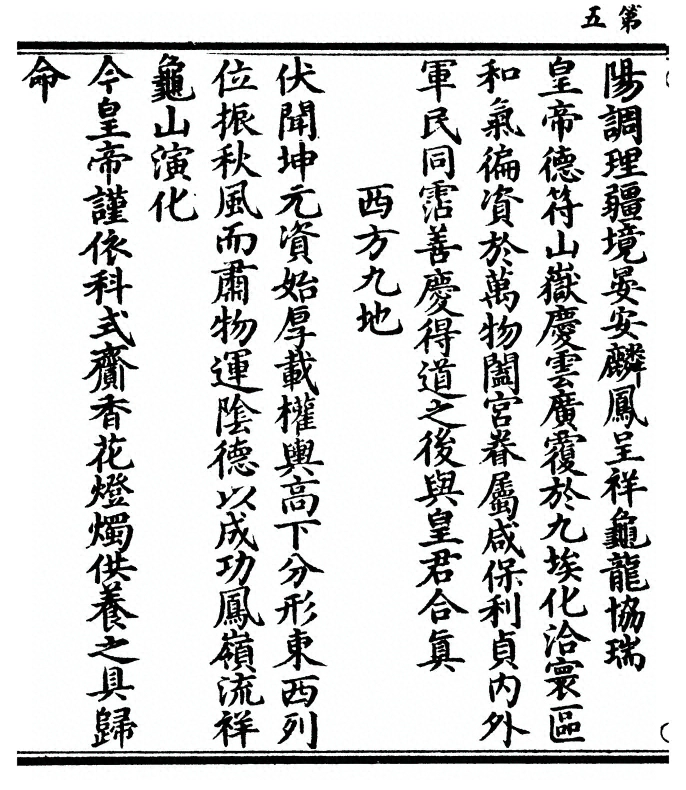 第五
陽調理疆境晏安麟鳳呈祥龜龍協瑞
皇帝德符山嶽慶雲廣覆於九埃化洽寰區
和氣徧資於萬物闔宮眷屬咸保利貞內外
軍民同霑善慶得道之後與皇君合眞
西方九地
伏聞坤元資始厚載權輿高下分形東西列
位振秋風而肅物運陰德以成功鳳嶺流祥
龜山演化
今皇帝謹依科式齎香花燈燭供養之具歸
命